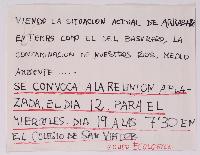 VIENDO LA SITUACION ACTUAL DE ARRABALDE
EN TEMAS COMO EL DEL BASURERO, LA
CONTAMINACION DE NUESTROS RIOS, MEDIO
AMBIENTE.....
SE CONVOCA A LA REUNION APLA-
ZADA, EL DIA 12, PARA EL
MIERCOLES. DIA 19 A LAS 7'30 EN
EL COLEGIO DE SAN VICTOR
GRUPO ECOLOGISTA